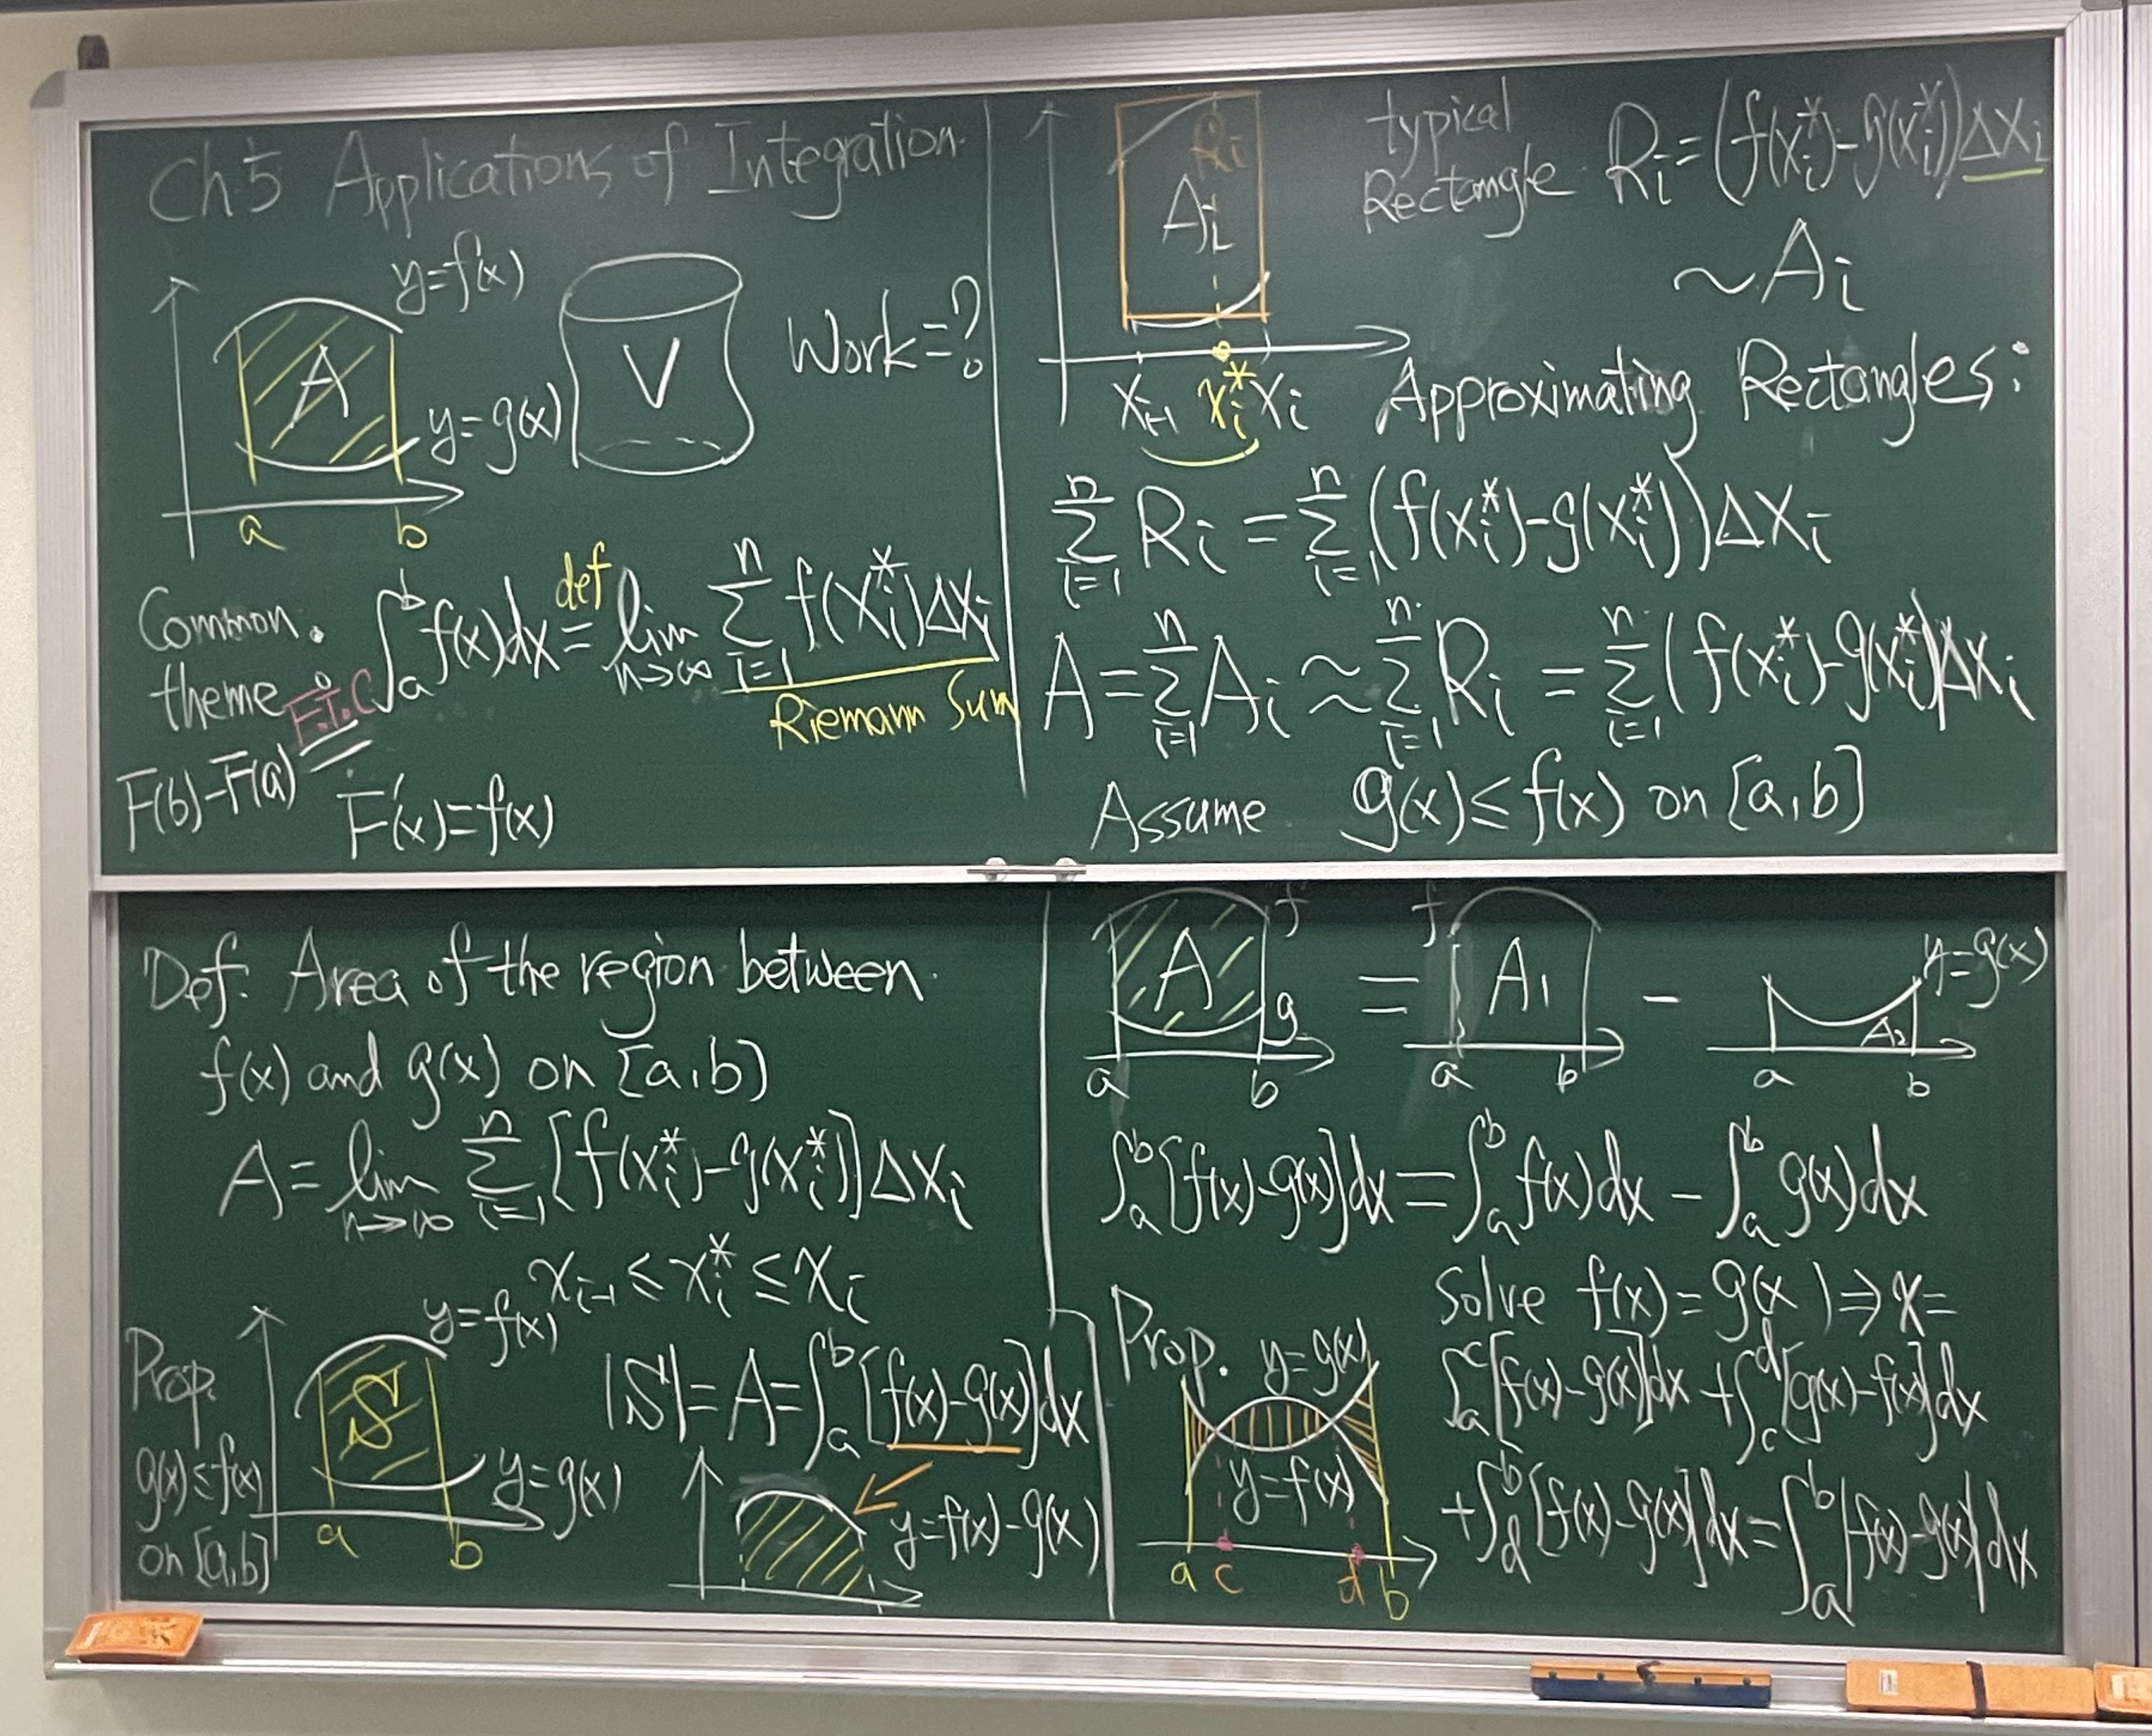 Ch.5 Applications of Integration
y=f(x)
A
y=g(x)
a b
V
Work=?
Common theme: ∫_a^b f(x)dx =^{def} lim_{n→∞} ∑_{i=1}^n f(x_i^*)Δx_i
Riemann Sum
F.T.C
F(b)-F(a) =
F'(x)=f(x)
R_i
A_i
x_{i-1} x_i^* x_i
typical Rectangle R_i=(f(x_i^*)-g(x_i^*))Δx_i
~A_i
Approximating Rectangles:
∑_{i=1}^n R_i = ∑_{i=1}^n (f(x_i^*)-g(x_i^*))Δx_i
A=∑_{i=1}^n A_i ≈ ∑_{i=1}^n R_i = ∑_{i=1}^n (f(x_i^*)-g(x_i^*))Δx_i
Assume g(x)≤f(x) on [a,b]
Def. Area of the region between
f(x) and g(x) on [a,b]
A= lim_{n→∞} ∑_{i=1}^n [f(x_i^*)-g(x_i^*)]Δx_i
x_{i-1} ≤ x_i^* ≤ x_i
Prop.
g(x)≤f(x)
on [a,b]
y=f(x)
S
y=g(x)
a b
|S|=A=∫_a^b [f(x)-g(x)]dx
y=f(x)-g(x)
A f g a b = f A_1 a b - y=g(x) A_2 a b
∫_a^b [f(x)-g(x)]dx = ∫_a^b f(x)dx - ∫_a^b g(x)dx
Prop.
y=g(x)
y=f(x)
a c d b
Solve f(x)=g(x)⇒x=
∫_a^c [f(x)-g(x)]dx + ∫_c^d [g(x)-f(x)]dx
+∫_d^b [f(x)-g(x)]dx = ∫_a^b |f(x)-g(x)|dx